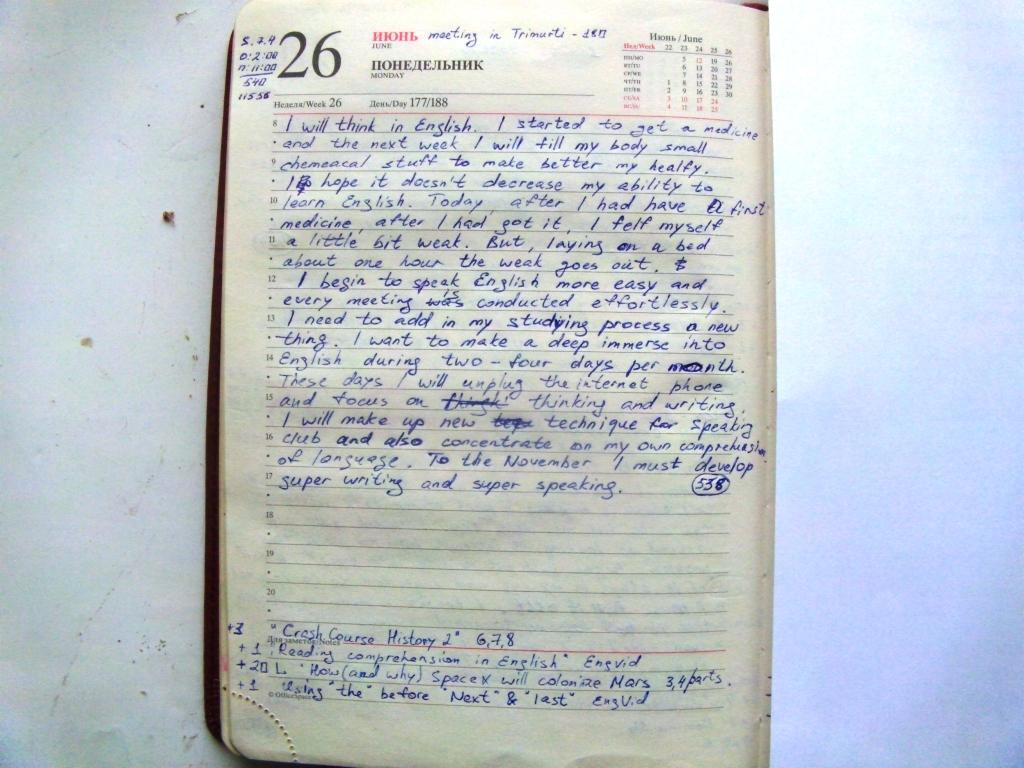 5.7.4
0:2:00
П:11:00
540
11556
26
ИЮНЬ meeting in Trimurti - 18П
JUNE
ПОНЕДЕЛЬНИК
MONDAY
Июнь / June
Нед/Week 22 23 24 25 26
ПН/MO 5 12 19 26
ВТ/TU 6 13 20 27
СР/WE 7 14 21 28
ЧТ/TH 1 8 15 22 29
ПТ/FR 2 9 16 23 30
СБ/SA 3 10 17 24
ВС/SU 4 11 18 25
Неделя/Week 26 День/Day 177/188
8 I will think in English. I started to get a medicine
and the next week I will fill my body small
9 chemeacal stuff to make better my healfy.
I hope it doesn't decrease my ability to
10 learn English. Today, after I had have a first
medicine, after I had got it, I felf myself
11 a little bit weak. But, laying on a bed
about one hour the weak goes out.
12 I begin to speak English more easy and
every meeting is conducted effortlessly.
13 I need to add in my studying process a new
thing. I want to make a deep immerse into
14 English during two - four days per month.
These days I will unplug the internet phone
15 and focus on thinking and writing.
I will make up new technique for speaking
16 club and also concentrate on my own comprehension
of language. To the November I must develop
17 super writing and super speaking. 538
18
19
20
+3 "Crash Course History 2" 6,7,8
Для заметок/Notes
+1 "Reading comprehension in English" Engvid
+2П L "How (and why) SpaceX will colonize Mars 3,4 parts.
+1 "Using "the" before "Next" & "last" EngVid
© OfficeSpace